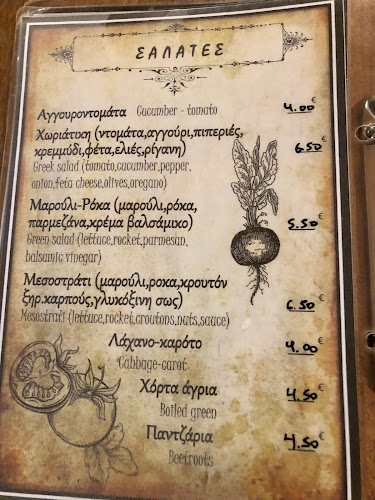 ΣΑΛΑΤΕΣ
Αγγουροντομάτα Cucumber - tomato 4.00€
Χωριάτικη (ντομάτα,αγγούρι,πιπεριές,
κρεμμύδι,φέτα,ελιές,ρίγανη) 6.50€
Greek salad (tomato,cucumber,pepper,
onion,feta cheese,olives,oregano)
Μαρούλι-Ρόκα (μαρούλι,ρόκα,
παρμεζάνα,κρέμα βαλσάμικο) 5.50€
Green salad (lettuce,rocket,parmesan,
balsamic vinegar)
Μεσοστράτι (μαρούλι,ροκα,κρουτόν
ξηρ.καρπούς,γλυκόξινη σως) 6.50€
Mesostrati (lettuce,rocket,croutons,nuts,sauce)
Λάχανο-καρότο 4.00€
Cabbage-carot
Χόρτα άγρια 4.50€
Boiled green
Παντζάρια 4.50€
Beetroots